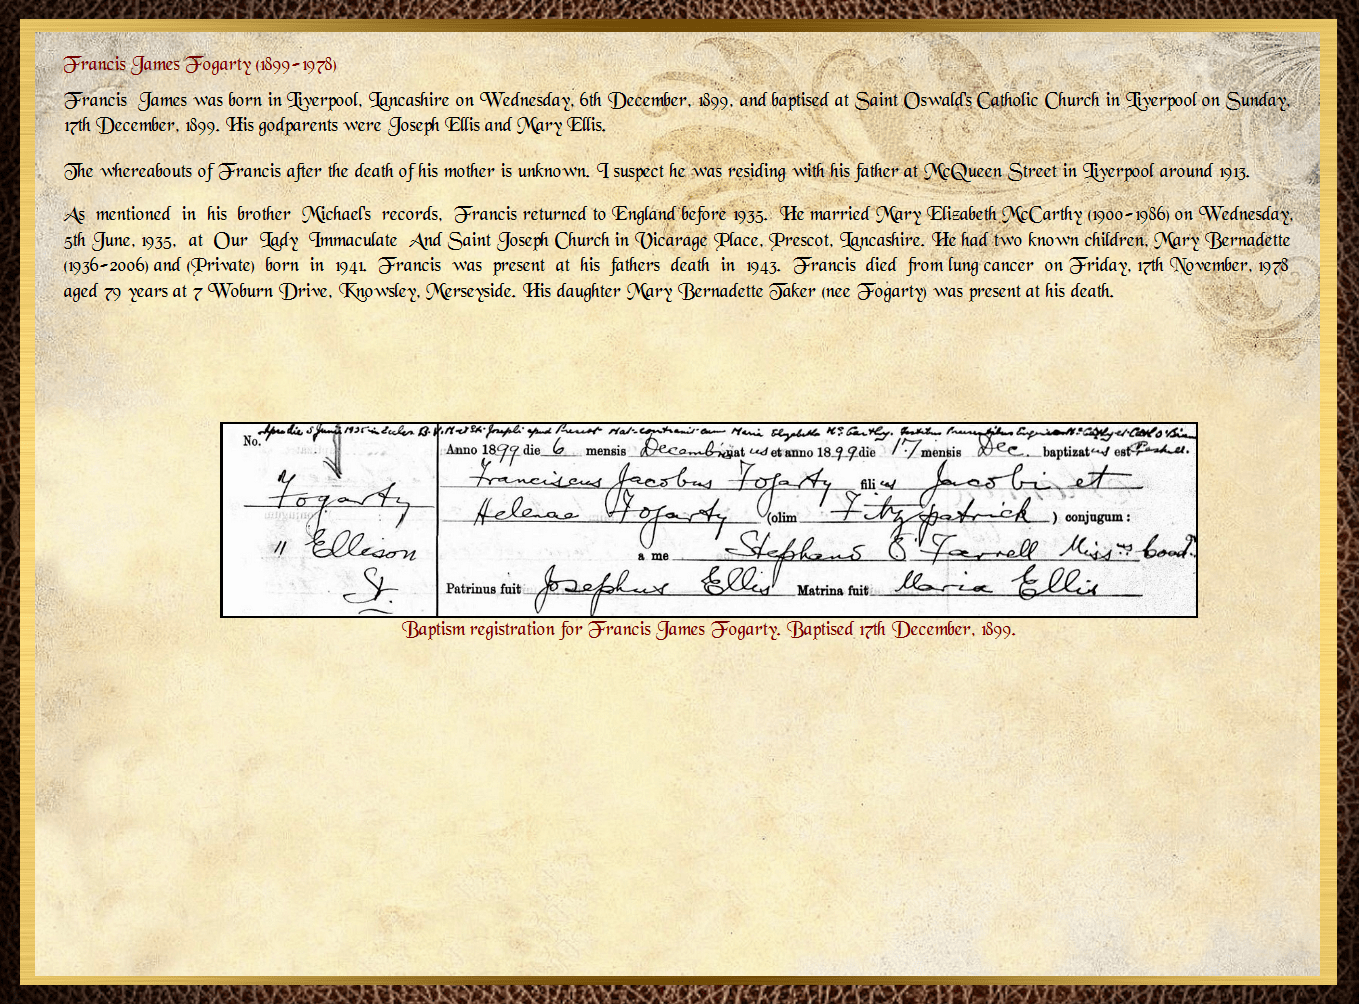 Francis James Fogarty (1899-1978)
Francis James was born in Liverpool, Lancashire on Wednesday, 6th December, 1899, and baptised at Saint Oswald's Catholic Church in Liverpool on Sunday,
17th December, 1899. His godparents were Joseph Ellis and Mary Ellis.
The whereabouts of Francis after the death of his mother is unknown. I suspect he was residing with his father at McQueen Street in Liverpool around 1913.
As mentioned in his brother Michael's records, Francis returned to England before 1935. He married Mary Elizabeth McCarthy (1900-1986) on Wednesday,
5th June, 1935, at Our Lady Immaculate And Saint Joseph Church in Vicarage Place, Prescot, Lancashire. He had two known children, Mary Bernadette
(1936-2006) and (Private) born in 1941. Francis was present at his fathers death in 1943. Francis died from lung cancer on Friday, 17th November, 1978
aged 79 years at 7 Woburn Drive, Knowsley, Merseyside. His daughter Mary Bernadette Taker (nee Fogarty) was present at his death.
die 5 June 1935 in Eccles. B.V.M. et St. Joseph apud Prescot Mat. contraxit cum Maria Elizabeth McCarthy,
No.
Anno 1899 die 6 mensis Decembris nat us et anno 1899 die 17 mensis Dec. baptizatus est
Fogarty
Franciscus Jacobus Fogarty filius Jacobi et
Helenae Fogarty (olim Fitzpatrick) conjugum:
" Ellison
a me Stephano O'Farrell Miss. coad.
St.
Patrinus fuit Josephus Ellis Matrina fuit Maria Ellis
Baptism registration for Francis James Fogarty. Baptised 17th December, 1899.